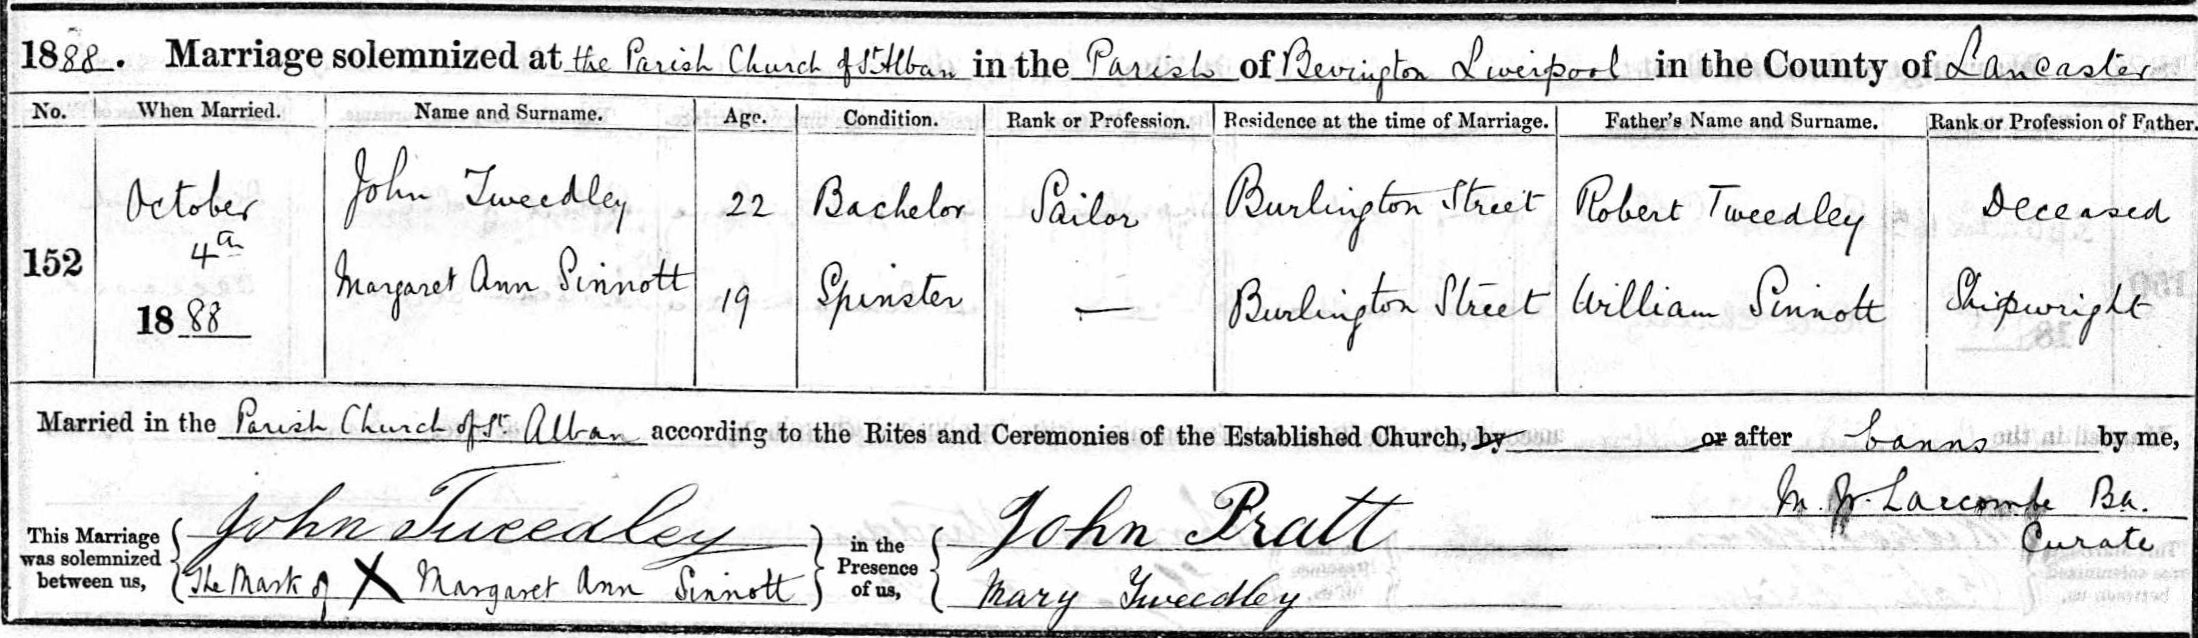 1888. Marriage solemnized at the Parish Church of St Alban in the Parish of Bevington Liverpool in the County of Lancaster
No. When Married. Name and Surname. Age. Condition. Rank or Profession. Residence at the time of Marriage. Father's Name and Surname. Rank or Profession of Father.
152 October 4th 1888 John Tweedley 22 Bachelor Sailor Burlington Street Robert Tweedley Deceased
Margaret Ann Sinnott 19 Spinster — Burlington Street William Sinnott Shipwright
Married in the Parish Church of St Alban according to the Rites and Ceremonies of the Established Church, by or after banns by me,
M. W. Larcombe Ba.
Curate
This Marriage was solemnized between us, John Tweedley in the Presence of us, John Pratt
The Mark of X Margaret Ann Sinnott Mary Tweedley